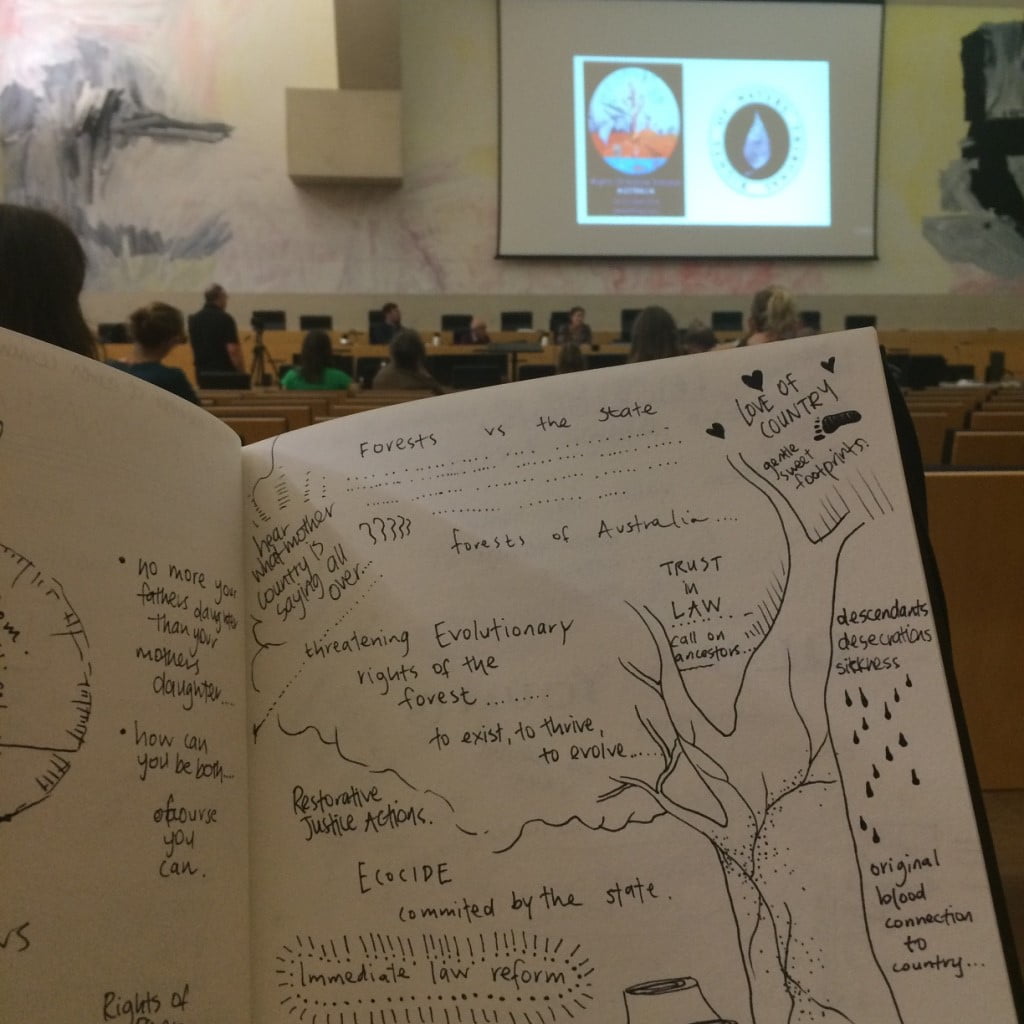 RIGHTS OF NATURE TRIBUNAL
AUSTRALIA
Forests vs the State
LOVE OF
COUNTRY
gentle
sweet
footprints.
hear
what mother
country is
saying all
over...
forests of Australia....
TRUST
in
LAW...
call on
ancestors...
threatening Evolutionary
rights of the
forest.......
to exist, to thrive,
to evolve.....
descendants
desecrations
sickness
Restorative
Justice Actions.
ECOCIDE
commited by the state.
Immediate law reform
original
blood
connection
to
country...
• no more your
fathers daughter
than your
mothers
daughter....
• how can
you be both...
ofcourse
you
can.
Rights of